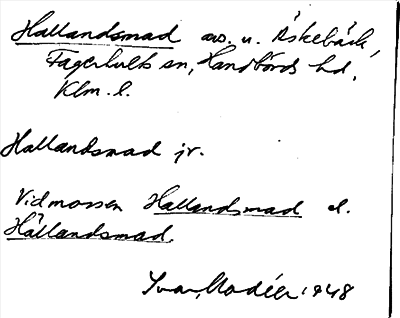 Hallandsmad avs. u. Äskebäck,
Fagerhults sn, Handbörds hd,
Klm. l.
Hallandsmad jr.
Vidmossen Hallandsmad el.
Hållandsmad.
Ivar Modéer 1948